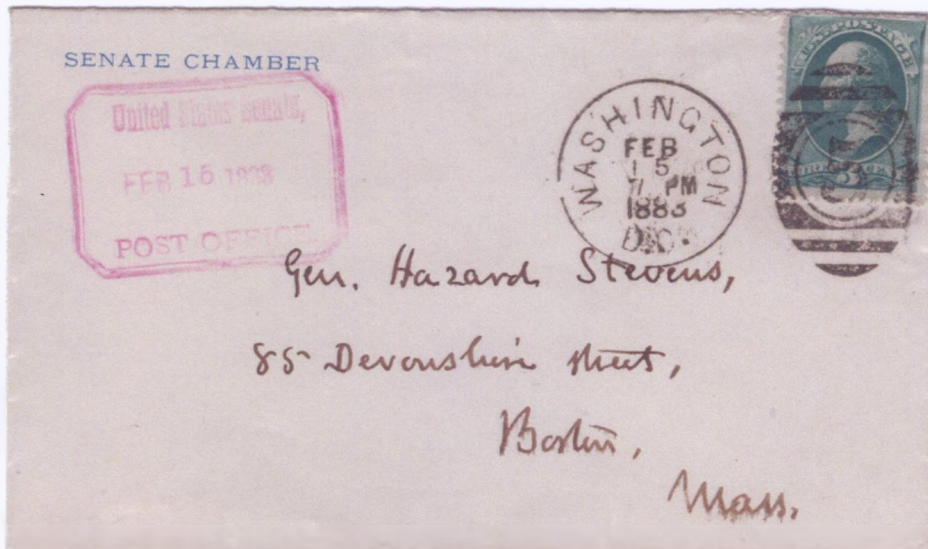 SENATE CHAMBER
United States Senate,
FEB 15 1883
POST OFFICE
WASHINGTON
FEB
15
7 PM
1883
D.C.
U.S. POSTAGE
Gen. Hazard Stevens,
85 Devonshire street,
Boston,
Mass.